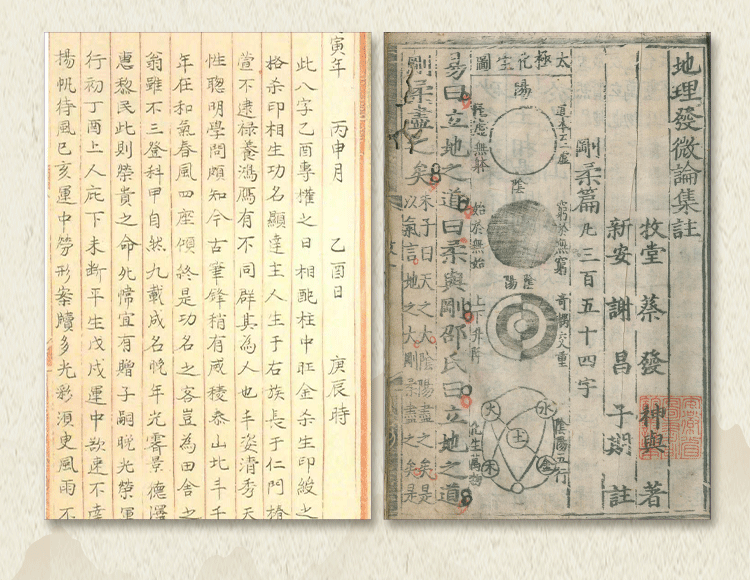 寅年 丙申月 乙酉日 庚辰時
此八字乙酉專權之日相配柱中旺金杀生印綬之
格杀印相生功名顯達主人生于右族長于仁門椿
萱不逮祿養鴻鴈有不同群其為人也丰姿清秀天
性聰明學問頗知今古筆鋒稍有威稜泰山北斗千
年在和氣春風四座傾終是功名之客豈為田舍之
翁雖不三登科甲自然九載成名晚年光霽景德澤
惠黎民此則榮貴之命宜有贈子嗣晚光榮運
行初丁酉上人庇下未斷平生戊戌運中欲速不達
揚帆待風己亥運中勞形案牘多光彩須更風雨不
地理發微論集註
牧堂蔡發神與著
新安謝昌子期註
剛柔篇凡三百五十四字
太極化生圖
陽
陰
始於無始
窮於無窮
陰陽
上下升降
水
火
土
木
金
陰陽五行
化生萬物
易曰立地之道曰柔與剛邵氏曰立地之道
剛柔盡之矣
朱子曰天之大陰陽盡之矣是
以氣言地之大剛柔盡之矣是